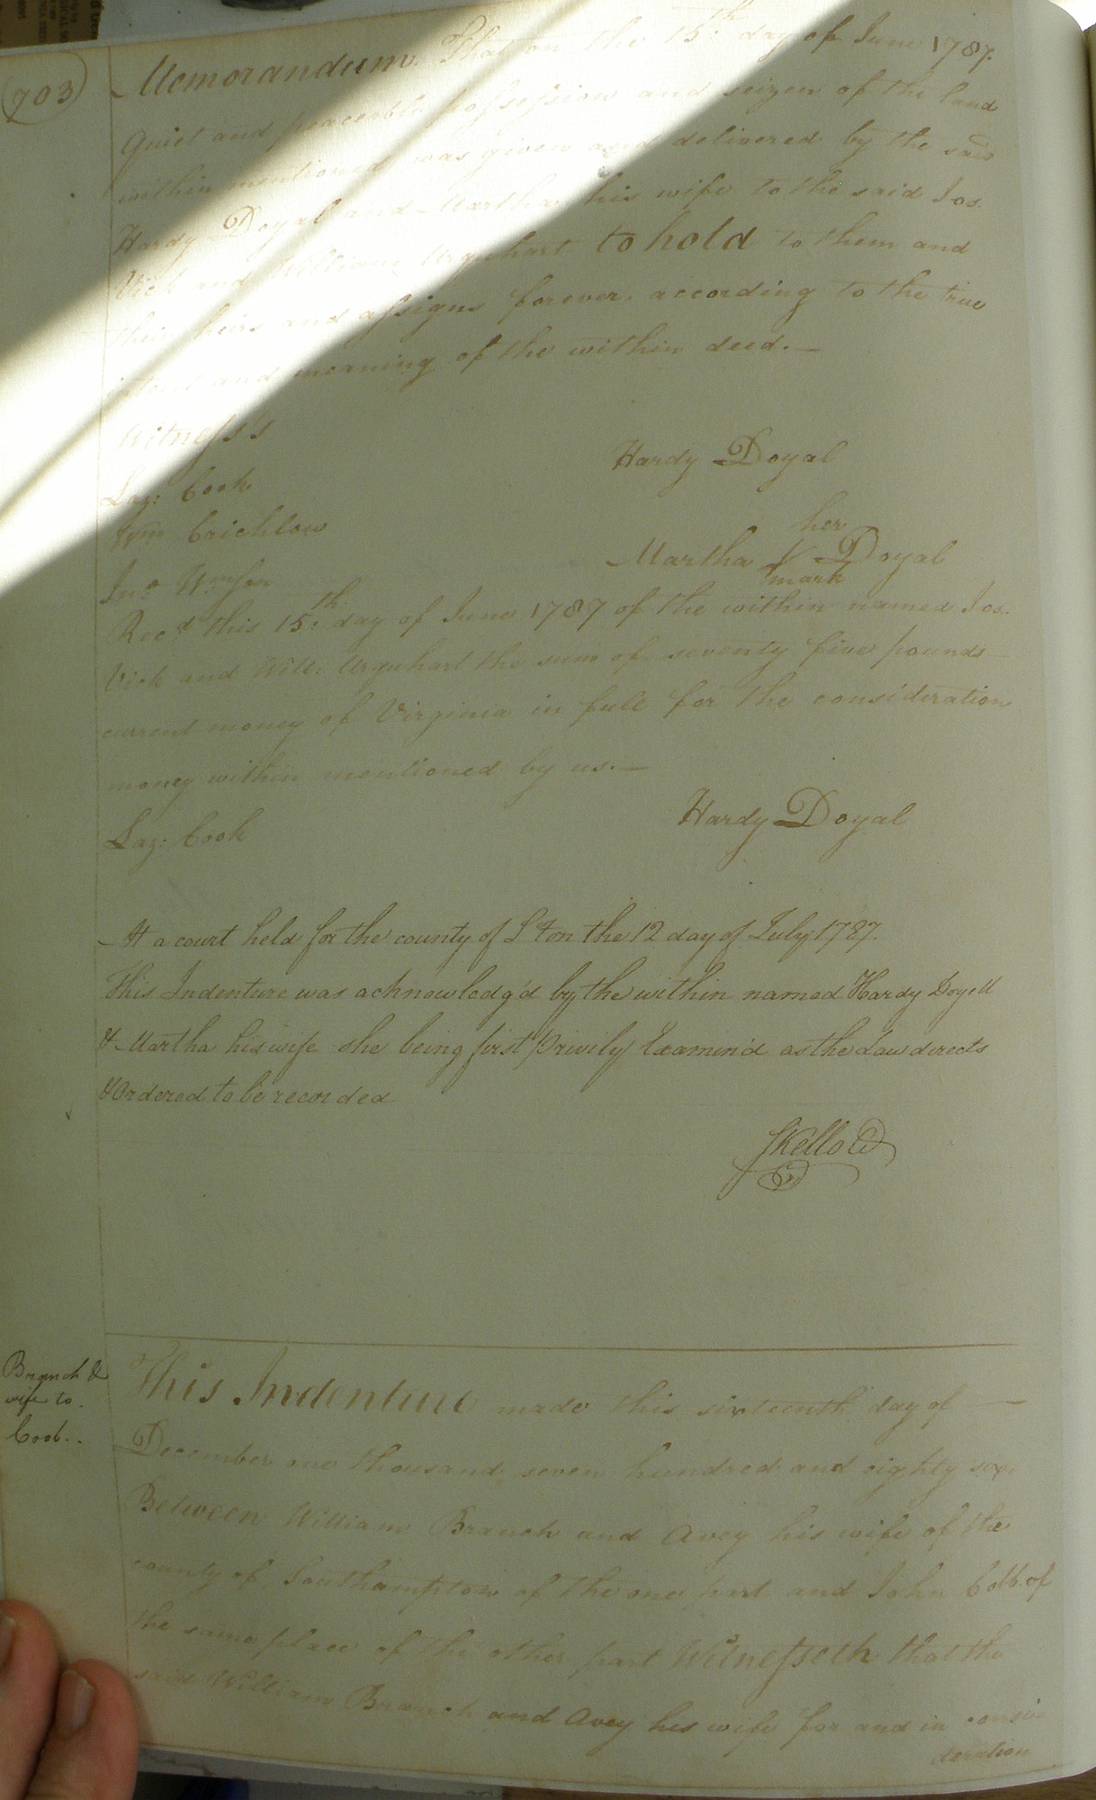 703
Memorandum. That on the 15th day of June 1787.
Quiet and peaceable possession and seizen of the land
within mentioned was given and delivered by the said
Hardy Doyal and Martha his wife to the said Jos.
Vick and William Urquhart to hold to them and
their heirs and assigns forever. according to the true
intent and meaning of the within deed.—
Witness's
Laz: Cook
Wm Crichlow
Jno
Hardy Doyal
her
Martha X Doyal
mark
Recd this 15th day of June 1787 of the within named Jos.
Vick and Will: Urquhart the sum of seventy five pounds
current money of Virginia in full for the consideration
money within mentioned by us.—
Laz: Cook
Hardy Doyal
At a court held for the county of S Ton the 12 day of July 1787.
This Indenture was acknowledg'd by the within named Hardy Doyell
& Martha his wife she being first Privily Examin'd as the Law directs
& Ordered to be recorded
Branch &
wife to.
Cobb..
This Indenture made this sixteenth day of —
December one thousand, seven hundred and eighty six
Between William Branch and Avey his wife of the
county of Southampton of the one part and John Cobb. of
the same place of the other part Witnesseth that the
said William Branch and Avey his wife for and in consi
deration